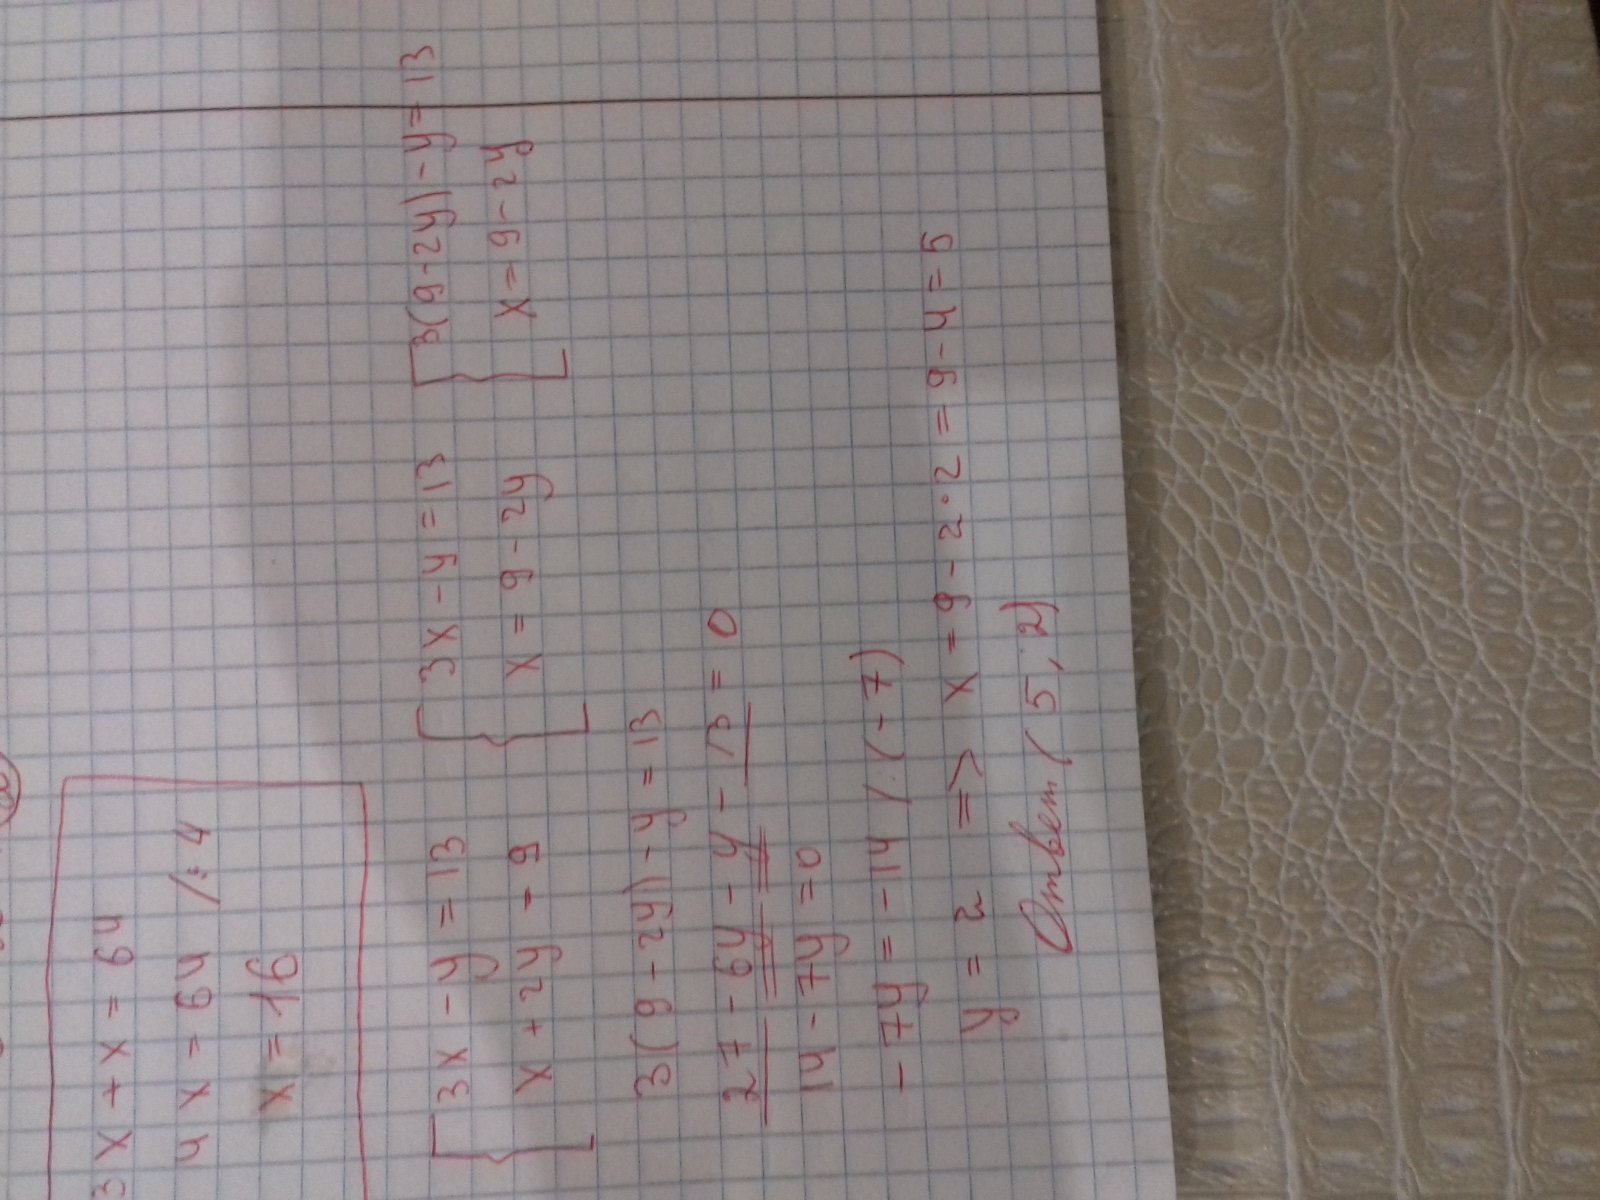 3x + x = 64
4x = 64 /: 4
x = 16
{ 3x - y = 13 { 3x - y = 13 { 3(9 - 2y) - y = 13
x + 2y = 9 x = 9 - 2y x = 9 - 2y
3(9 - 2y) - y = 13
27 - 6y - y - 13 = 0
14 - 7y = 0
- 7y = - 14 /:(- 7)
y = 2 => x = 9 - 2·2 = 9 - 4 = 5
Ответ (5; 2)